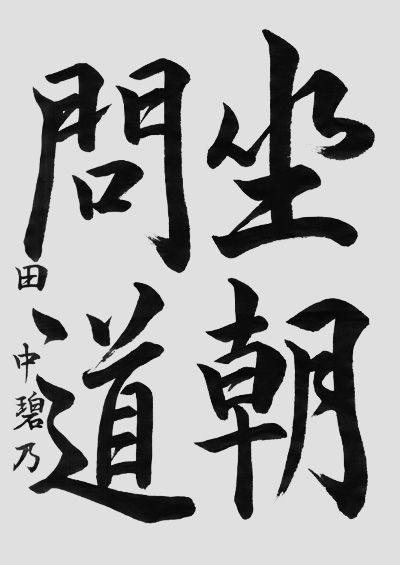 坐朝
問道
田中碧乃